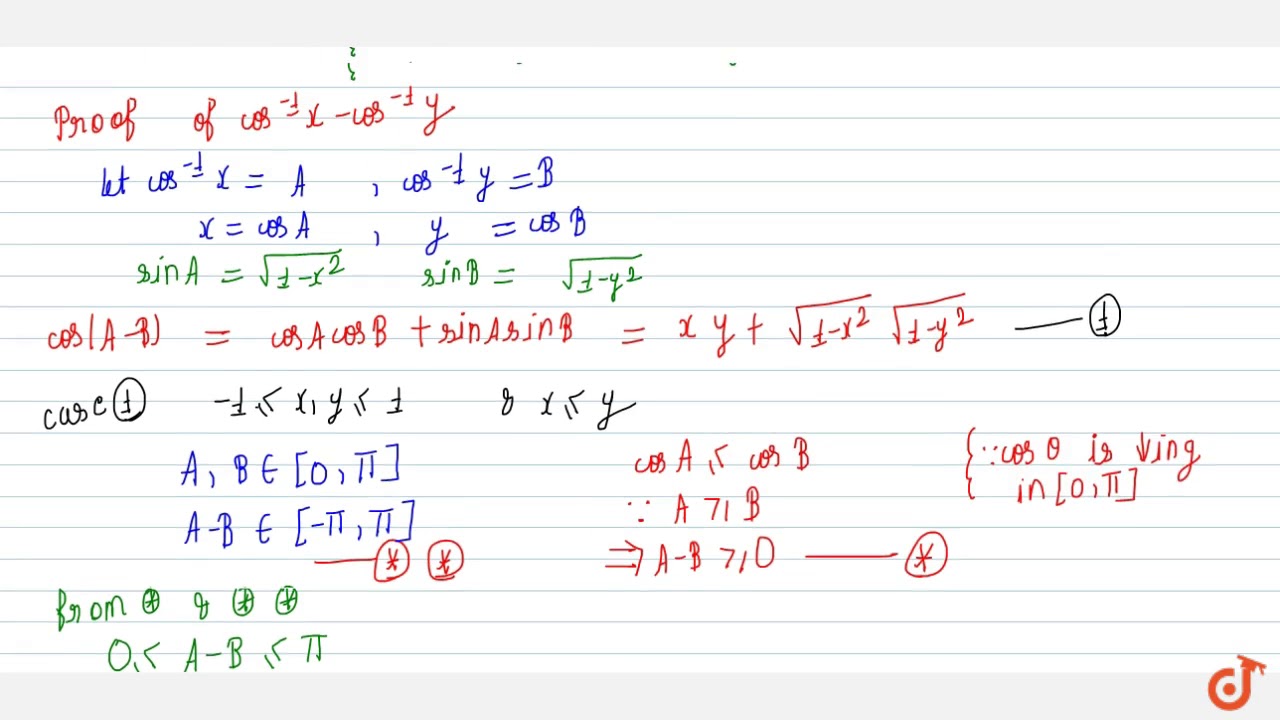 Proof of cos⁻¹x - cos⁻¹y
let cos⁻¹x = A , cos⁻¹y = B
x = cosA , y = cosB
sinA = √1-x² sinB = √1-y²
cos(A-B) = cosAcosB + sinAsinB = xy + √1-x² √1-y² — ①
case ① -1 ≤ x, y ≤ 1 & x ≤ y
A, B ∈ [0, π]
A-B ∈ [-π, π]
— ⊛ ⊛
cosA ≤ cosB
∵ A ≥ B
⇒ A-B ≥ 0 — ⊛
{∵ cosθ is ↓ing
in [0, π]
from ⊛ & ⊛ ⊛
0 ≤ A-B ≤ π